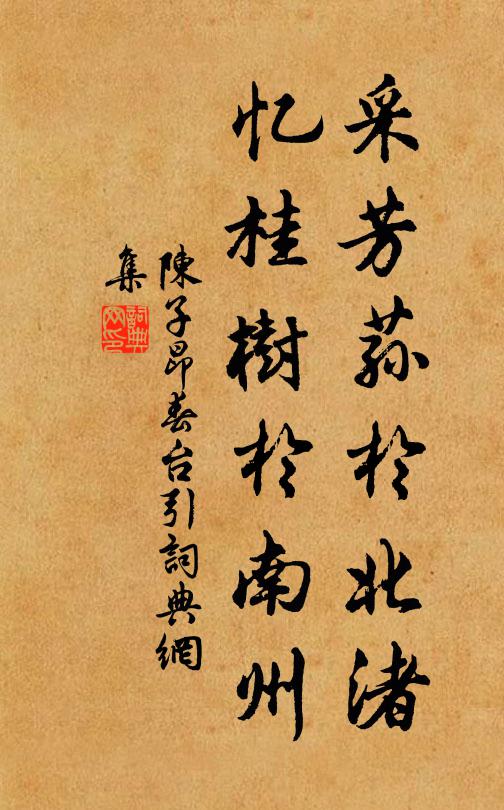 采芳荪於北渚
忆桂樹於南州
陳子昂春台引詞典網
集
詞典
网印